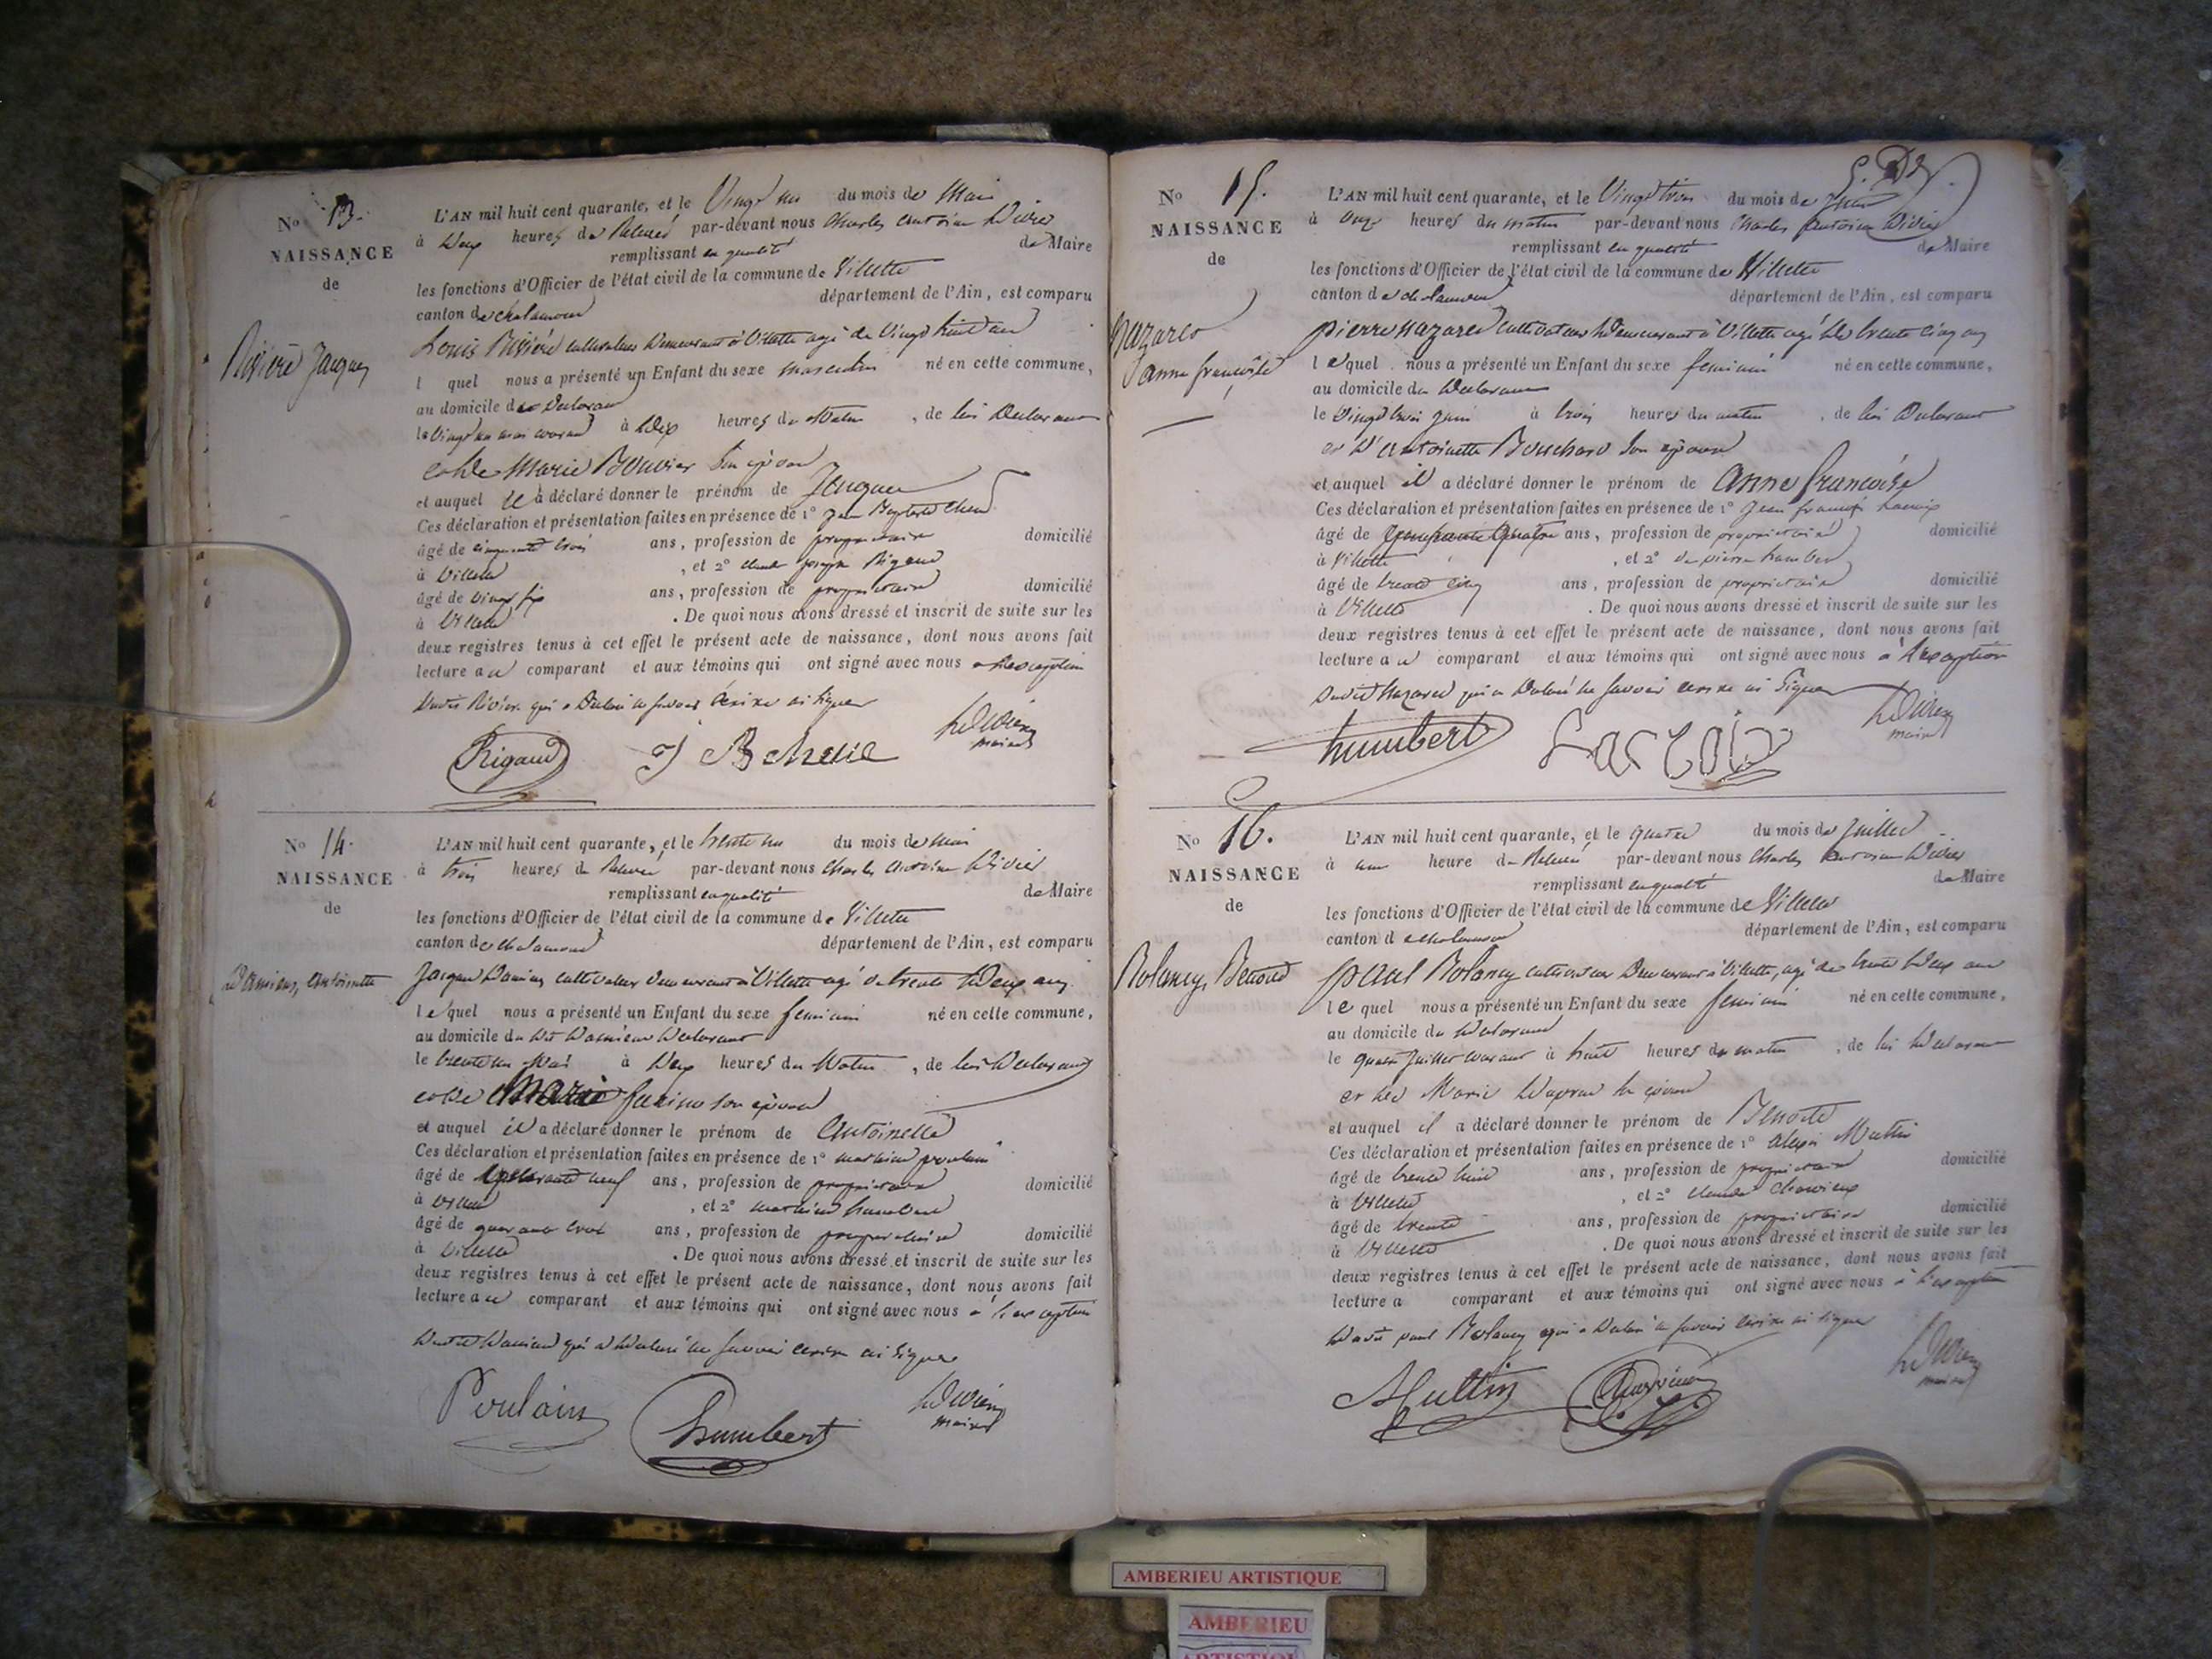 N° 13.
NAISSANCE
de
Rivière Jacques
L'AN mil huit cent quarante, et le Vingt un du mois de Mai
à deux heures de Relevé par-devant nous Charles antoine Divier
remplissant en qualité de Maire
les fonctions d'Officier de l'état civil de la commune de Villette
canton de chalamont département de l'Ain, est comparu
Louis Rivière cultivateur Demeurant à Villette agé de Vingt huit ans
l quel nous a présenté un Enfant du sexe masculin né en cette commune,
au domicile du Declarant
le Vingt un mai courant à dix heures du Matin, de lui Declarant
et de Marie Bouvier Son épouse
et auquel il a déclaré donner le prénom de Jacques
Ces déclaration et présentation faites en présence de 1° Jean Baptiste
âgé de cinquante trois ans, profession de propriétaire domicilié
à Villette, et 2° claude joseph Rigaud
âgé de vingt six ans, profession de propriétaire domicilié
à Villette. De quoi nous avons dressé et inscrit de suite sur les
deux registres tenus à cet effet le présent acte de naissance, dont nous avons fait
lecture au comparant et aux témoins qui ont signé avec nous a l'exception
Dudit Rivière qui a Declaré ne savoir écrire ni signer
Rigaud J B Divier
maire
N° 14.
NAISSANCE
de
Damien, antoinette
L'AN mil huit cent quarante, et le trente un du mois de mai
à trois heures de Relevé par-devant nous Charles antoine Divier
remplissant en qualité de Maire
les fonctions d'Officier de l'état civil de la commune de Villette
canton de chalamont département de l'Ain, est comparu
Jacques Damien cultivateur demeurant à Villette agé de trente Deux ans
lequel nous a présenté un Enfant du sexe feminin né en cette commune,
au domicile du dit Damien Declarant
le trente un Mai à Deux heures du Matin, de lui Declarant
et de Marie son épouse
et auquel il a déclaré donner le prénom de Antoinette
Ces déclaration et présentation faites en présence de 1° mathieu poulain
âgé de neuf ans, profession de propriétaire domicilié
à Villette, et 2° mathieu humbert
âgé de quarante trois ans, profession de propriétaire domicilié
à Villette. De quoi nous avons dressé et inscrit de suite sur les
deux registres tenus à cet effet le présent acte de naissance, dont nous avons fait
lecture au comparant et aux témoins qui ont signé avec nous a l'exception
Dudit Damien qui a Declaré ne savoir écrire ni signer
Poulain humbert Divier
maire
N° 15.
NAISSANCE
de
Nazaret
anne françoise
L'AN mil huit cent quarante, et le Vingt trois du mois de Juin
à onze heures du matin par-devant nous Charles antoine Divier
remplissant en qualité de Maire
les fonctions d'Officier de l'état civil de la commune de Villette
canton de chalamont département de l'Ain, est comparu
pierre nazaret cultivateur demeurant à Villette agé de trente cinq ans
lequel nous a présenté un Enfant du sexe feminin né en cette commune,
au domicile du Declarant
le Vingt trois juin à trois heures du matin, de lui Declarant
et d'antoinette Bouchard Son épouse
et auquel il a déclaré donner le prénom de anne francoise
Ces déclaration et présentation faites en présence de 1° Jean françois Lacroix
âgé de quatre ans, profession de propriétaire domicilié
à Villette, et 2° pierre humbert
âgé de trente cinq ans, profession de propriétaire domicilié
à Villette. De quoi nous avons dressé et inscrit de suite sur les
deux registres tenus à cet effet le présent acte de naissance, dont nous avons fait
lecture au comparant et aux témoins qui ont signé avec nous à l'exception
Dudit Nazaret qui a Declaré ne savoir écrire ni signer
humbert Lacroix Divier
maire
N° 16.
NAISSANCE
de
Bolancy, Benoite
L'AN mil huit cent quarante, et le quatre du mois de Juillet
à une heure de Relevé par-devant nous Charles antoine Divier
remplissant en qualité de Maire
les fonctions d'Officier de l'état civil de la commune de Villette
canton de chalamont département de l'Ain, est comparu
paul Bolancy cultivateur Demeurant à Villette, agé de trente deux ans
lequel nous a présenté un Enfant du sexe feminin né en cette commune,
au domicile du declarant
le quatre Juillet courant à huit heures du matin, de lui declarant
et de Marie son épouse
et auquel il a déclaré donner le prénom de Benoite
Ces déclaration et présentation faites en présence de 1° alexis Multin
âgé de trente huit ans, profession de propriétaire domicilié
à Villette, et 2° claude
âgé de trente ans, profession de propriétaire domicilié
à Villette. De quoi nous avons dressé et inscrit de suite sur les
deux registres tenus à cet effet le présent acte de naissance, dont nous avons fait
lecture a comparant et aux témoins qui ont signé avec nous à l'exception
Dudit paul Bolancy qui a Declaré ne savoir écrire ni signer
Multin Divier
maire
AMBERIEU ARTISTIQUE
AMBERIEU
ARTISTIQUE